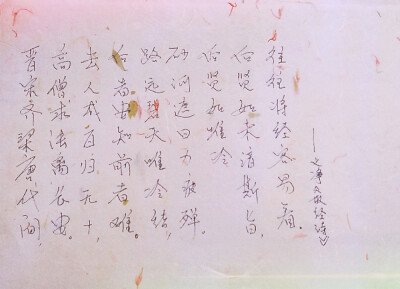 晋宋齐梁唐代间,
高僧求法离长安。
去人成百归无十,
后者安知前者难。
路远碧天唯冷结,
砂河遮日力疲殚。
后贤如唯冷
后贤如未谙斯旨,
往往将经容易看。
——义净取经诗♡